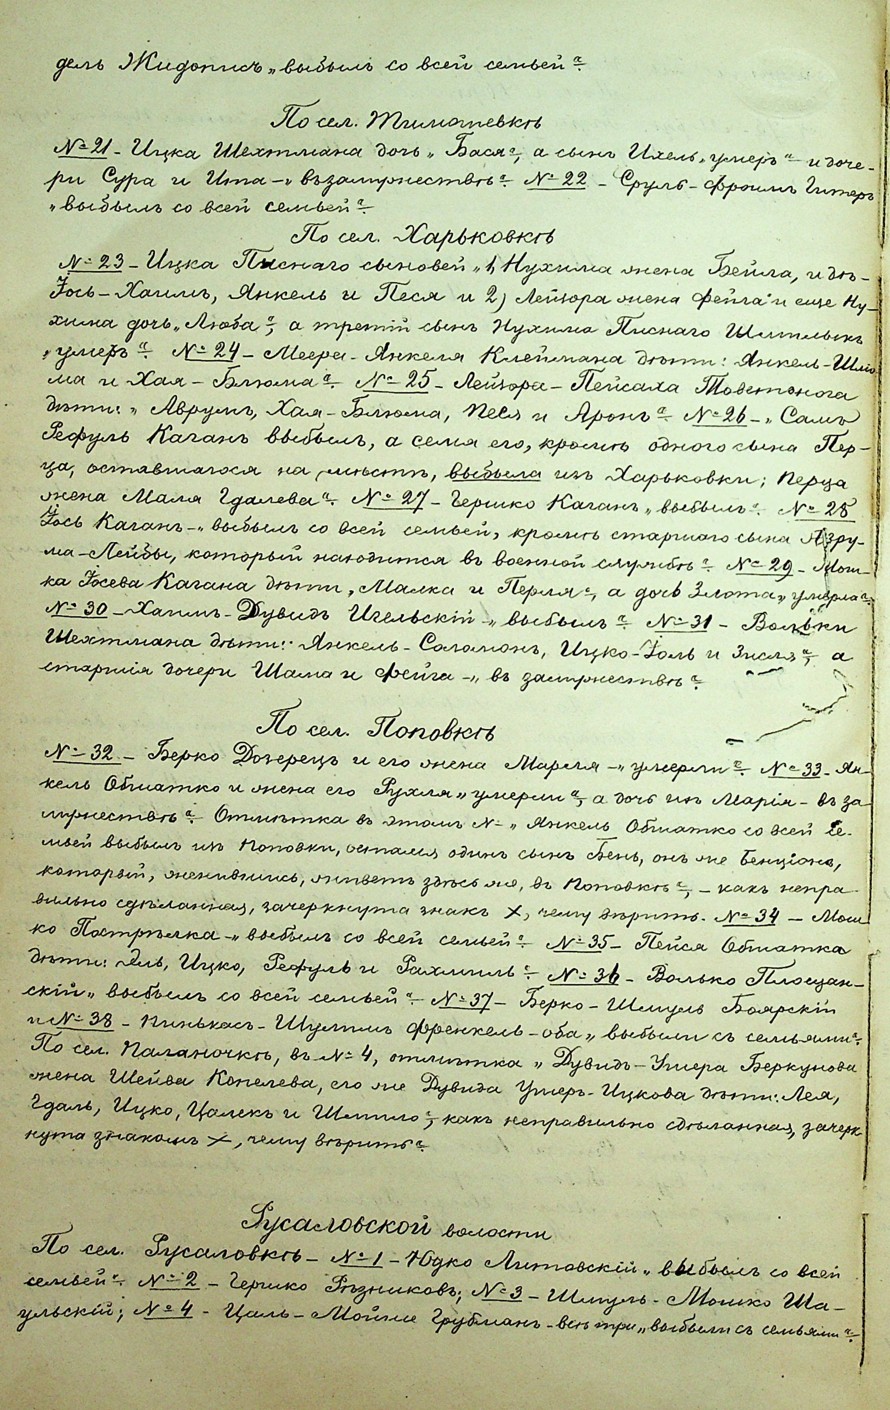 дель Жидописъ „выбылъ со всей семьей“.
По сел. Тимошевкѣ
№ 21 – Ицка Шехтмана дочь „Бася“, а сынъ Ихель „умеръ“ и доче-
ри Сура и Ита – „въ замужествѣ“. № 22 – Сруль-Фроимъ Гитеръ
„выбылъ со всей семьей“.
По сел. Харьковкѣ
№ 23 – Ицка Писнаго сыновей „1, Нухима жена Бейла, и дѣ-
Іось-Хаимъ, Янкель и Песя и 2) Лейзора жена Фейга“ и еще Ну-
хима дочь „Люба“, а третій сынъ Нухима Писнаго Шмилыкъ
„умеръ“. № 24 – Меера-Янкеля Клеймана дѣти: Янкель-Шлё-
ма и Хая-Блюма“. № 25 – Лейзора-Пейсаха Товетонога
дѣти: „Аврумъ, Хая-Блюма, Песя и Аронъ“. № 26 – „Самъ
Рефуль Каганъ выбылъ, а семя его, кромѣ одного сына Пер-
ца, оставшагося на мѣстѣ, выбыла изъ Харьковки; Перца
жена Маля Гдалева“. № 27 – Гершко Каганъ „выбылъ“. № 28
Іось Каганъ – „выбылъ со всей семьей, кромѣ старшаго сына Авру-
ма-Лейбы, который находится въ военной службѣ“. № 29 – Мош-
ка Іосева Кагана дѣти „Малка и Перля“, а дочь Злота „умерла“.
№ 30 – Хаимъ-Дувидъ Ичельскій – „выбылъ“. № 31 – Вольки
Шехтмана дѣти: Янкель-Соломонъ, Ицко-Іоль и Зисля“, а
старшія дочери Шама и Фейга – „въ замужествѣ“.
По сел. Поповкѣ
№ 32 – Берко Дозорецъ и его жена Маря – „умерли“. № 33 – Ян-
кель Обшатко и жена его Рухля „умерли“, а дочь ихъ Марія – въ за-
мужествѣ“. Отмѣтка въ этомъ № – „Янкель Обшатко со всей се-
мьей выбылъ изъ Поповки, остался одинъ сынъ Бень, онъ же Бенціонъ,
который, женившись, живетъ здѣсь же, въ Поповкѣ“, – какъ непра-
вильно сдѣланная, зачеркнута знакъ ×, чему вѣрить. № 34 – Мош-
ко Пострѣлка – „выбылъ со всей семьей“. № 35 – Пейся Обшатка
дѣти: Эль, Ицко, Рефуль и Рахмиль“. № 36 – Волько Площан-
скій „выбылъ со всей семьей“. № 37 – Берко-Шмуль Боярскій
и № 38 – Пинькасъ-Шулимъ Френкель – оба „выбыли съ семьями“.
По сел. Паланочкѣ, въ № 4, отмѣтка „Дувидъ-Ушера Беркунова
жена Шейва Копелева, его же Дувида Ушеръ-Ицкова дѣти: Лея,
Гдаль, Ицко, Цалекъ и Шмило“, какъ неправильно сдѣланная, зачерк-
нута знакомъ ×, чему вѣрить“.
Русаловской волости
По сел. Русаловкѣ – № 1 – Юдко Литовскій „выбылъ со всей
семьей“. № 2 – Гершко Рѣзниковъ; № 3 – Шмуль-Мошко Ша-
ульскій; № 4 – Цаль-Мойше Грубманъ – всѣ три „выбыли съ семьями“.